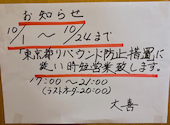 お知らせ
10/1 〜 10/24まで
「東京都リバウンド防止措置に
従い時短営業致します。
17:00〜21:00
(ラストオーダー20:00)
大喜